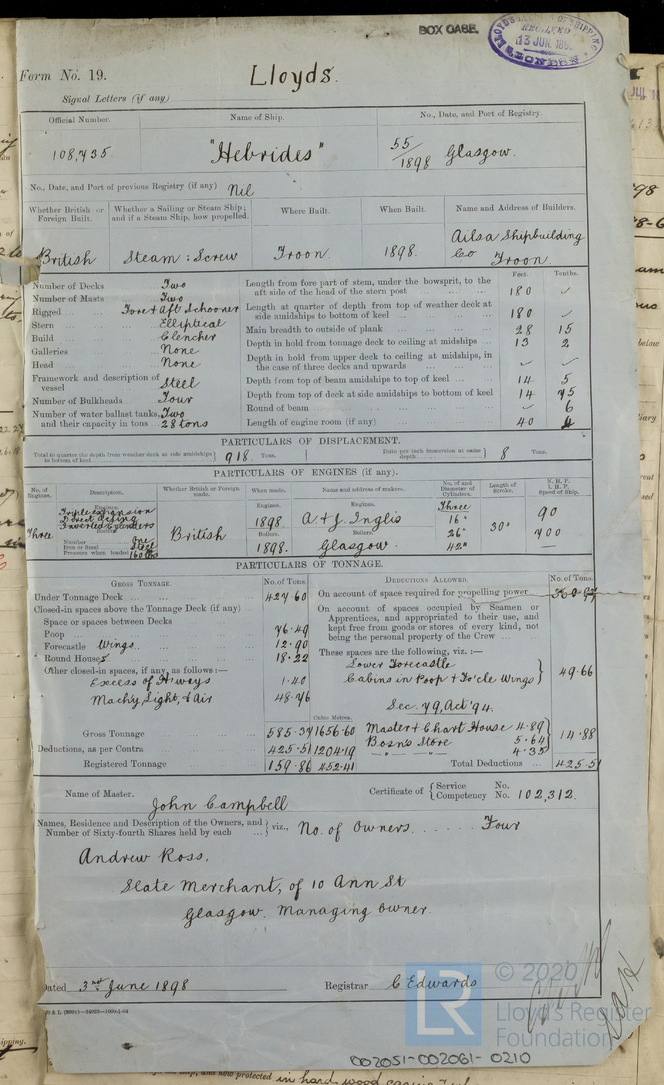 BOX CASE.
LLOYD'S REGISTER OF SHIPPING
RECEIVED
13 JUN. 189
LONDON
Form No. 19.
Lloyds.
Signal Letters (if any)
Official Number.
Name of Ship.
No., Date, and Port of Registry.
108,735.
"Hebrides"
55/1898 Glasgow.
No., Date, and Port of previous Registry (if any) Nil
Whether British or Foreign Built.
Whether a Sailing or Steam Ship; and if a Steam Ship, how propelled.
Where Built.
When Built.
Name and Address of Builders.
British
Steam : Screw
Troon
1898.
Ailsa Shipbuilding
Co Troon.
Feet. Tenths.
Number of Decks Two
Number of Masts Two
Rigged Fore & Aft Schooner
Stern Elliptical
Build Clencher
Galleries None
Head None
Framework and description of vessel Steel
Number of Bulkheads Four
Number of water ballast tanks, Two
and their capacity in tons 28 tons
Length from fore part of stem, under the bowsprit, to the aft side of the head of the stern post 180 ✓
Length at quarter of depth from top of weather deck at side amidships to bottom of keel 180 ✓
Main breadth to outside of plank 28 15
Depth in hold from tonnage deck to ceiling at midships 13 2
Depth in hold from upper deck to ceiling at midships, in the case of three decks and upwards ✓ ✓
Depth from top of beam amidships to top of keel 14 5
Depth from top of deck at side amidships to bottom of keel 14 75
Round of beam ✓ 6
Length of engine room (if any) 40 4
PARTICULARS OF DISPLACEMENT.
Total to quarter the depth from weather deck at side amidships to bottom of keel 918 Tons.
Ditto per inch immersion at same depth 8 Tons.
PARTICULARS OF ENGINES (if any).
No. of Engines.
Description.
Whether British or Foreign made.
When made.
Name and address of makers.
No. of and Diameter of Cylinders.
Length of Stroke.
N. H. P.
I. H. P.
Speed of Ship.
Three
Engines.
Triple expansion
Direct Acting
Inverted Cylinders
Boilers.
Number One
Iron or Steel Steel
Pressure when loaded 160 lbs
British
Engines.
1898
Boilers.
1898.
Engines.
A. & J. Inglis
Boilers.
Glasgow.
Three
16"
26"
42"
30"
90
700
—
PARTICULARS OF TONNAGE.
GROSS TONNAGE. No. of Tons.
Under Tonnage Deck 427.60
Closed-in spaces above the Tonnage Deck (if any)
Space or spaces between Decks
Poop 76.49
Forecastle Wings 12.90
Round Houses 18.22
Other closed-in spaces, if any, as follows :—
Excess of H'ways 1.40
Mach'y, Light, & Air 48.76
Cubic Metres.
Gross Tonnage 585.37 1656.60
Deductions, as per Contra 425.51 1204.19
Registered Tonnage 159.86 452.41
DEDUCTIONS ALLOWED. No. of Tons.
On account of space required for propelling power 360.97
On account of spaces occupied by Seamen or Apprentices, and appropriated to their use, and kept free from goods or stores of every kind, not being the personal property of the Crew
These spaces are the following, viz. :—
Lower Forecastle
Cabins in Poop & Fo'cle Wings } 49.66
Sec. 79, Act '94.
Master & Chart House 4.89
Bosn's Store 5.64
— " — " — 4.35 } 14.88
Total Deductions 425.51
Name of Master. John Campbell
Certificate of { Service No.
Competency No. 102,312.
Names, Residence and Description of the Owners, and Number of Sixty-fourth Shares held by each } viz., No. of Owners Four
Andrew Ross,
Slate Merchant, of 10 Ann St
Glasgow. Managing Owner.
Dated 3rd June 1898
Registrar C Edwards
LR
© 2020
Lloyd's Register
Foundation
002051-002061-0210
in hard wood